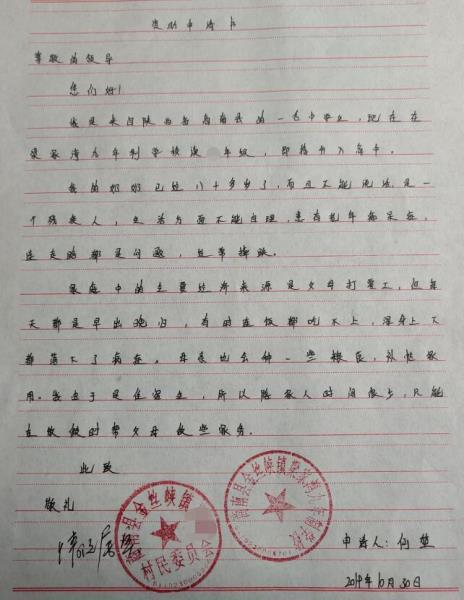 资助申请书
尊敬的领导
您们好!
我是来自陕西省商南县的一名中学生,现在在
梁家湾九年制学校读 年级,即将升入高中。
我的奶奶已经八十多岁了,而且不能说话,是一
个残疾人,生活方面不能自理,患有老年痴呆症,
连走路都是问题,经常摔跤。
家庭中的主要经济来源是父母打零工,但每
天都是早出晚归,有时连饭都吃不上,浑身上下
都落下了病症。母亲也会种一些粮食,补贴家
用。我由于是住宿生,所以陪家人时间很少,只能
在放假时帮父母做些家务。
此致
敬礼
申请人:何
2019年10月30日
商南县金丝峡镇
村民委员会
商南县金丝峡镇梁家湾九年制学校